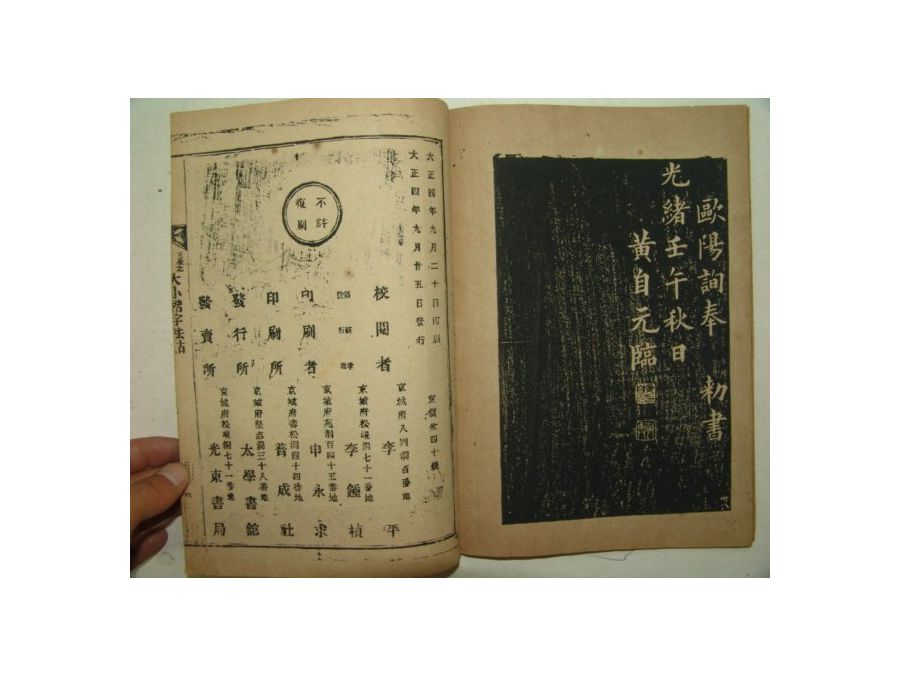 歐陽詢奉 勅書
光緒壬午秋日
黃自元臨
大正四年九月二十日印刷
大正四年九月廿五日發行
不許
復刷
定價金四十錢
校閱者 京城府八判洞百番地 李平
京城府松峴洞七十一番地 李鍾楨
印刷者 京城府苑洞百四十五番地 申永求
印刷所 京城府壽松洞四十四番地 普成社
發行所 京城府堅志洞三十八番地 太學書館
發賣所 京城府松峴洞七十一番地 光東書局
大小楷字法帖